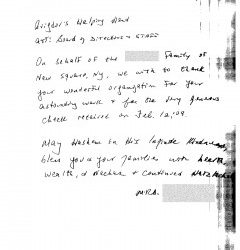 Avigdor's Helping Hand
ATT: Board of Directors & STAFF
On behalf of the Family of
New Square, NY, we wish to thank
your wonderful organization for your
astounding work & for the very generous
check received on Feb. 12, 09.
May Hashem in His infinite
bless you & your families with health,
wealth, & nachas & continued HATZLACHA
MRS.